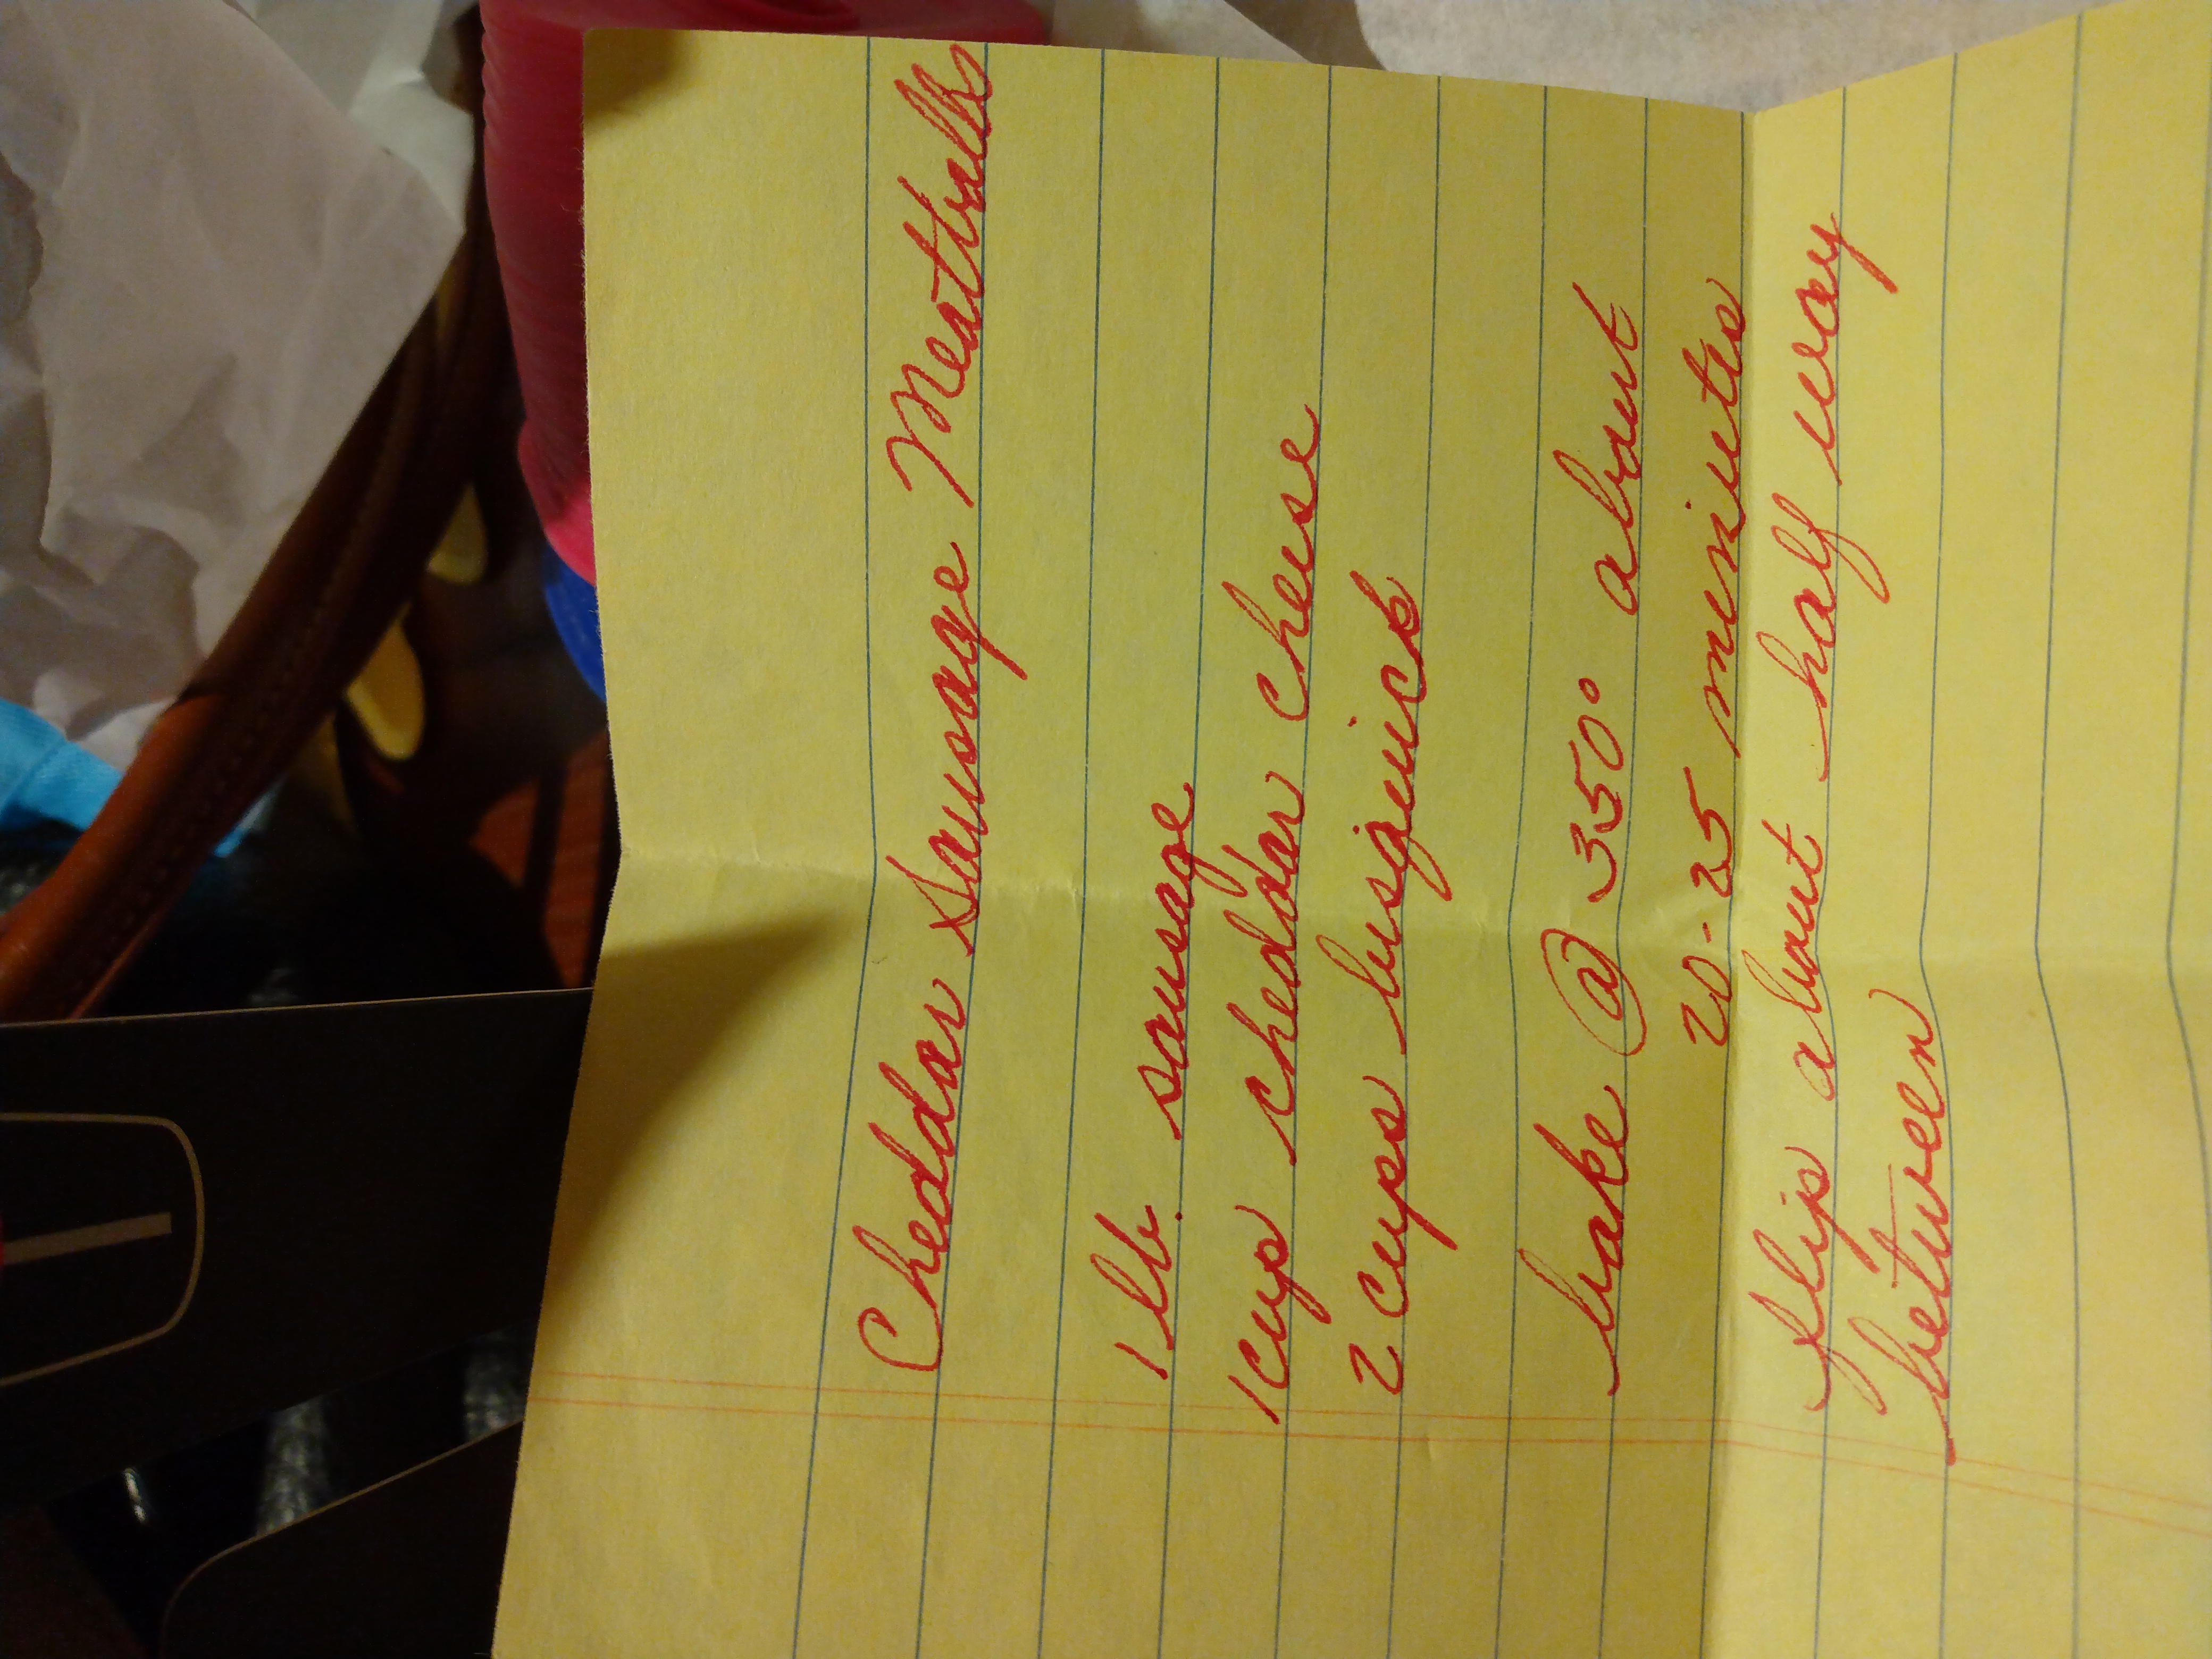 Cheddar Sausage Meatballs
1 lb. sausage
1 cup cheddar cheese
2 cups bisquick
bake @ 350° about
20-25 minutes
flip about half way
between